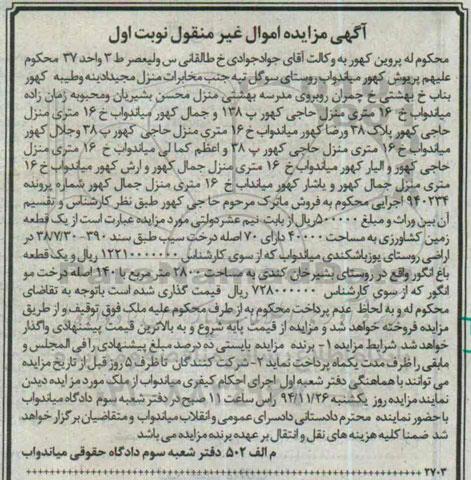 آگهی مزایده اموال غیر منقول نوبت اول
محکوم له پروین کهور به وکالت آقای جوادجوادی خ طالقانی س ولیعصر ط ۳ واحد ۳۷ محکوم
علیهم پریوش کهور میاندواب روستای سوگل تپه جنب مخابرات منزل مجیدادینه وطیبه کهور
بناب خ بهشتی خ چمران روبروی مدرسه بهشتی منزل محسن بشیریان ومحبوبه زمان زاده
میاندواب خ ۱۶ متری منزل حاجی کهور پ ۱۳۸ و جمال کهور میاندواب خ ۱۶ متری منزل
حاجی کهور پلاک ۳۸ ورضا کهور میاندواب خ ۱۶ متری منزل حاجی کهور پ ۳۸ وجلال کهور
میاندواب خ ۱۶ متری منزل حاجی کهور پ ۳۸ و اعظم کما لی میاندواب خ ۱۶ متری منزل
حاجی کهور و الیار کهور میاندواب خ ۱۶ متری منزل جمال کهور و ارش کهور میاندواب خ ۱۶
متری منزل جمال کهور و یاشار کهور میانداب خ ۱۶ متری منزل جمال کهور شماره پرونده
۹۴۰۲۳۴ اجرایی محکوم به فروش ماترک مرحوم حاجی کهور طبق نظر کارشناس و تقسیم
آن بین وراث و مبلغ ۵۰۰۰۰۰ریال از بابت نیم عشردولتی مورد مزایده عبارت است از یک قطعه
زمین کشاورزی به مساحت ۴۰۰۰۰ دارای ۷۰ اصله درخت سیب طبق سند ۳۹۰-۳۸/۷/۳۰ در
اراضی روستای یوزباشکندی میاندواب که از سوی کارشناس ۱۲۲۱۰۰۰۰۰۰ ریال و یک قطعه
باغ انگور واقع در روستای بشیرخان کندی به مساحت ۲۸۰۰ متر مربع با ۱۴۰۰ اصله درخت مو
انگور که از سوی کارشناس ۷۲۸۰۰۰۰۰۰ ریال قیمت گذاری شده است باتوجه به تقاضای
محکوم له و به لحاظ عدم پرداخت محکوم به از طرف محکوم علیه ملک فوق توقیف و از طریق
مزایده فروخته خواهد شد و مزایده از قیمت پایه شروع و به بالاترین قیمت پیشنهادی واگذار
خواهد شد. شرایط مزایده ۱- برنده مزایده بایستی ده درصد مبلغ پیشنهادی را فی المجلس و
مابقی را ظرف مدت یکماه پرداخت نماید ۲- شرکت کنندگان تاظرف ۵ روز قبل از تاریخ مزایده
می توانند با هماهنگی دفتر شعبه اول اجرای احکام کیفری میاندواب از ملک مورد مزایده دیدن
نمایند مزایده روز یکشنبه ۹۴/۱۱/۲۶ راس ساعت ۱۱ صبح در دفتر شعبه سوم دادگاه میاندواب
با حضور نماینده محترم دادستانی دادسرای عمومی و انقلاب میاندواب و متقاضیان بر گزار خواهد
شد ضمنا کلیه هزینه های نقل و انتقال بر عهده برنده مزایده می باشد
م الف ۵۰۲ دفتر شعبه سوم دادگاه حقوقی میاندواب
۲۷۰۳